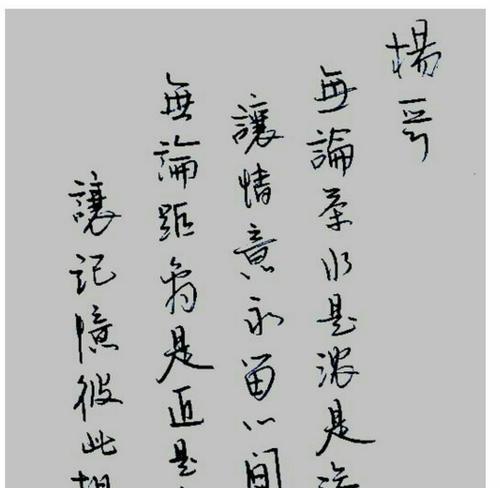 楊哥
無論茶水是濃是淡
讓情意永留心間
無論距離是近是
讓記憶彼此相